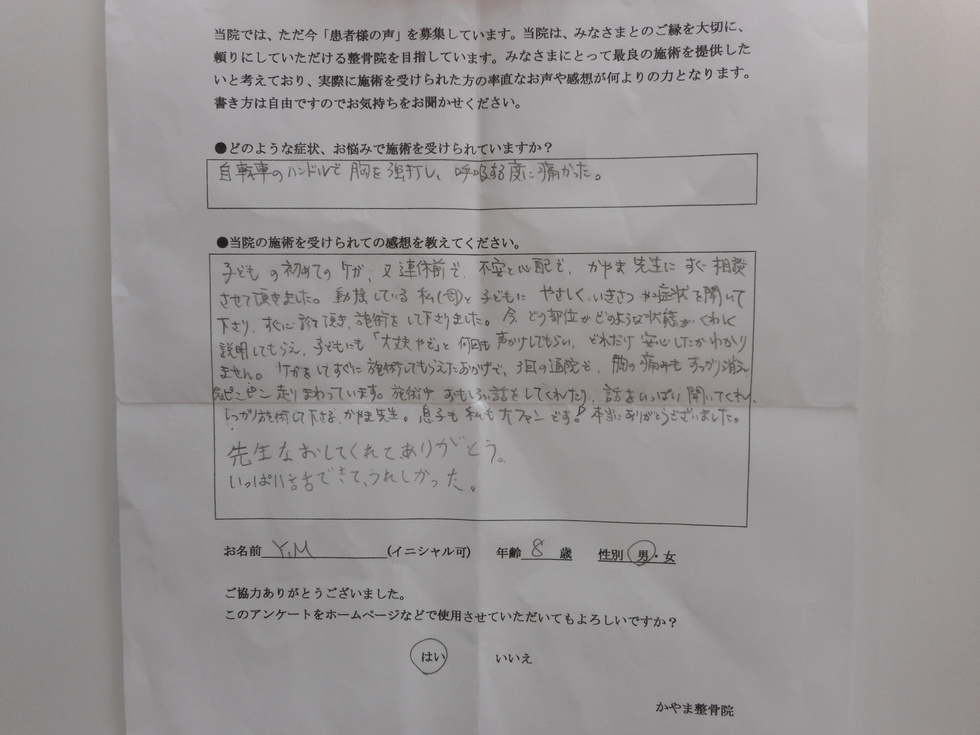 当院では、ただ今「患者様の声」を募集しています。当院は、みなさまとのご縁を大切に、
頼りにしていただける整骨院を目指しています。みなさまにとって最良の施術を提供した
いと考えており、実際に施術を受けられた方の率直なお声や感想が何よりの力となります。
書き方は自由ですのでお気持ちをお聞かせください。
●どのような症状、お悩みで施術を受けられていますか？
自転車のハンドルで胸を強打し、呼吸する度に痛かった。
●当院の施術を受けられての感想を教えてください。
子どもの初めてのケガ、又連休前で、不安と心配で、かやま先生にすぐ相談
させて頂きました。動揺している私(母)と子どもにやさしく、いきさつや症状を聞いて
下さり、すぐに診て頂き、施術をして下さりました。今、どの部位がどのような状態か、くわしく
説明してもらえ、子どもにも「大丈夫やで」と何回も声かけしてもらい、どれだけ安心したかわかり
ません。ケガをしてすぐに施術してもらえたおかげで、3回の通院で、胸の痛みもすっかり消え
ピンピン走りまわっています。施術中、おもしろい話をしてくれたり、話をいっぱい聞いてくれ、
しっかり施術して下さる、かやま先生。息子も私も大ファンです！本当にありがとうございました。
先生なおしてくれてありがとう。
いっぱい話できて、うれしかった。
お名前 Y.M (イニシャル可) 年齢 8 歳 性別 男・女
ご協力ありがとうございました。
このアンケートをホームページなどで使用させていただいてもよろしいですか？
はい いいえ
かやま整骨院